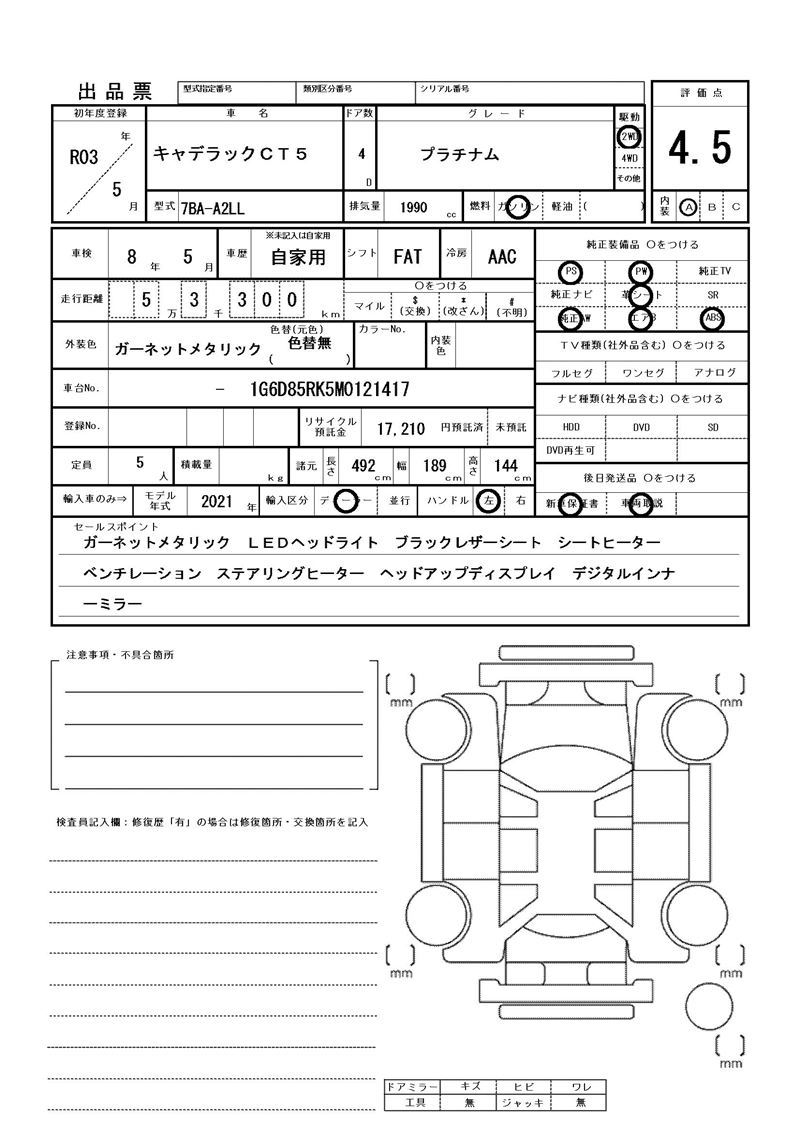 出品票
型式指定番号 類別区分番号 シリアル番号
評価点
4.5
初年度登録 車名 ドア数 グレード 駆動
R03 年 5 月
キャデラックＣＴ５
4 D
プラチナム
2WD
4WD
その他
型式 7BA-A2LL 排気量 1990 cc 燃料 ガソリン 軽油 ( )
内装 A B C
車検 8 年 5 月 車歴 ※未記入は自家用 自家用 シフト FAT 冷房 AAC
純正装備品 ○をつける
PS PW 純正TV
純正ナビ 革シート SR
純正AW エアB ABS
走行距離 5 万 3 千 3 0 0 km
○をつける
マイル $(交換) *(改ざん) #(不明)
外装色 ガーネットメタリック 色替(元色) 色替無 ( ) カラーNo. 内装色
TV種類(社外品含む) ○をつける
フルセグ ワンセグ アナログ
車台No. － 1G6D85RK5M0121417
ナビ種類(社外品含む) ○をつける
HDD DVD SD
DVD再生可
登録No. リサイクル預託金 17,210 円預託済 未預託
定員 5 人 積載量 kg 諸元 長さ 492 cm 幅 189 cm 高さ 144 cm
後日発送品 ○をつける
新車保証書 車両取説
輸入車のみ⇒ モデル年式 2021 年 輸入区分 ディーラー 並行 ハンドル 左 右
セールスポイント
ガーネットメタリック　ＬＥＤヘッドライト　ブラックレザーシート　シートヒーター
ベンチレーション　ステアリングヒーター　ヘッドアップディスプレイ　デジタルインナ
ーミラー
注意事項・不具合箇所
検査員記入欄：修復歴「有」の場合は修復箇所・交換箇所を記入
mm
mm
mm
mm
mm
ドアミラー キズ ヒビ ワレ
工具 無 ジャッキ 無